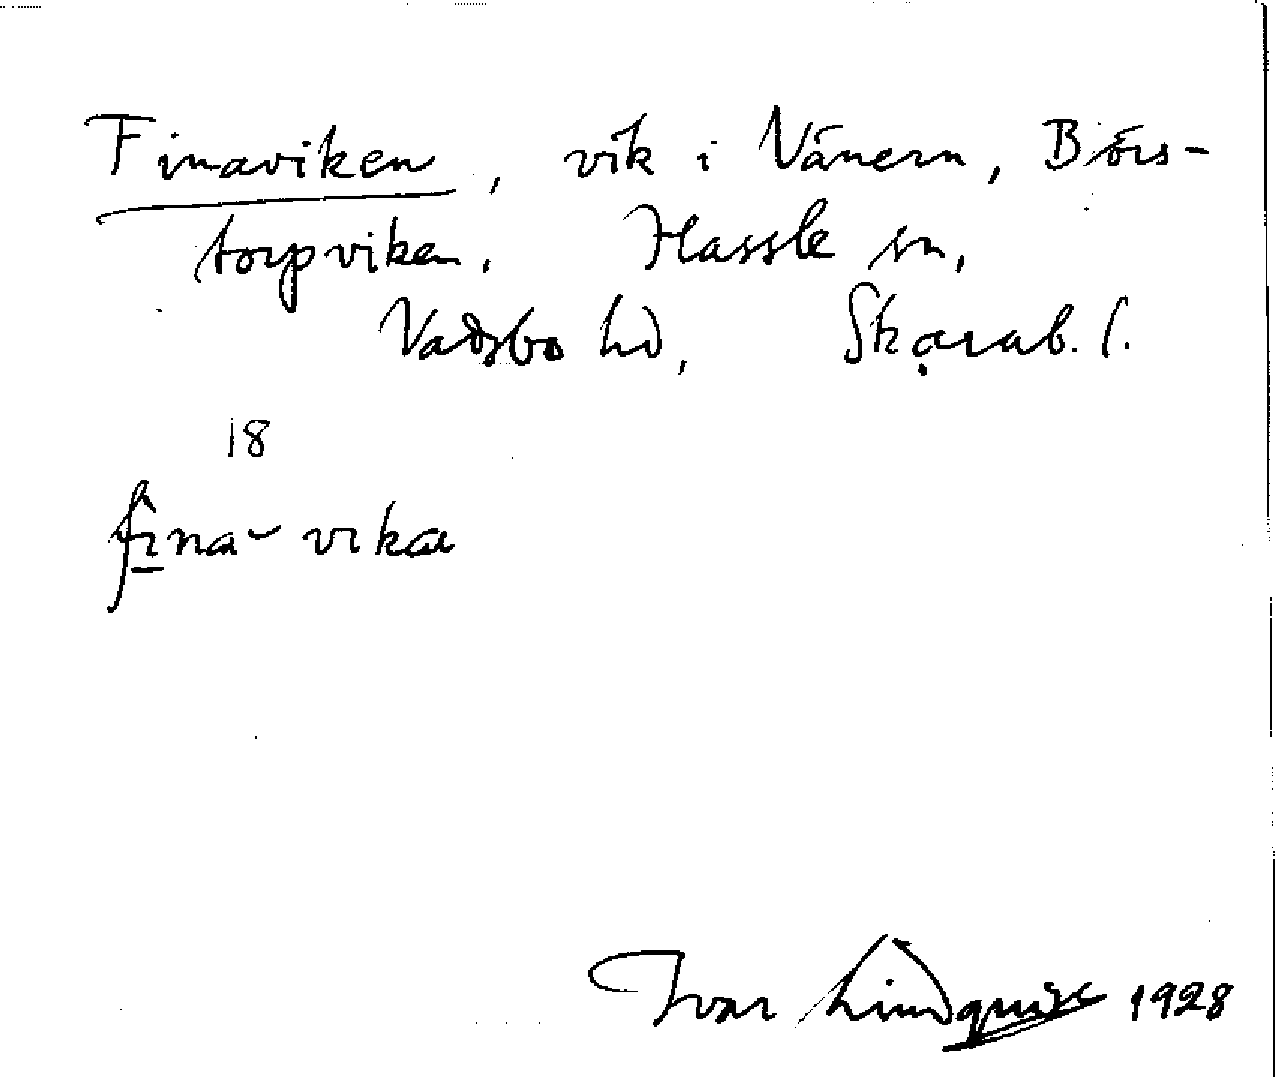 Finaviken, vik i Vänern, Börs-
torpviken. Hassle sn,
Vadsbo hd, Skarab. l.
18
fina-vika
Ivar Lindquist 1928